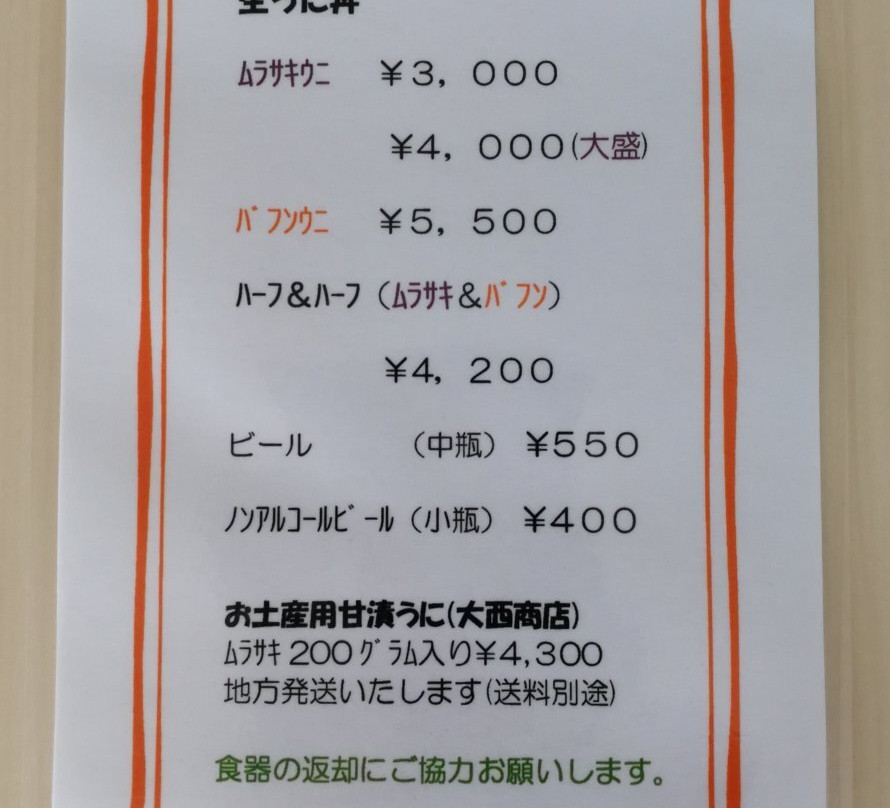 生うに丼
ﾑﾗｻｷｳﾆ ￥３，０００
￥４，０００(大盛)
ﾊﾞﾌﾝｳﾆ ￥５，５００
ﾊｰﾌ＆ﾊｰﾌ（ﾑﾗｻｷ＆ﾊﾞﾌﾝ）
￥４，２００
ビール （中瓶）￥５５０
ﾉﾝｱﾙｺｰﾙﾋﾞｰﾙ（小瓶）￥４００
お土産用甘漬うに(大西商店)
ﾑﾗｻｷ200ｸﾞﾗﾑ入り￥4,300
地方発送いたします(送料別途)
食器の返却にご協力お願いします。